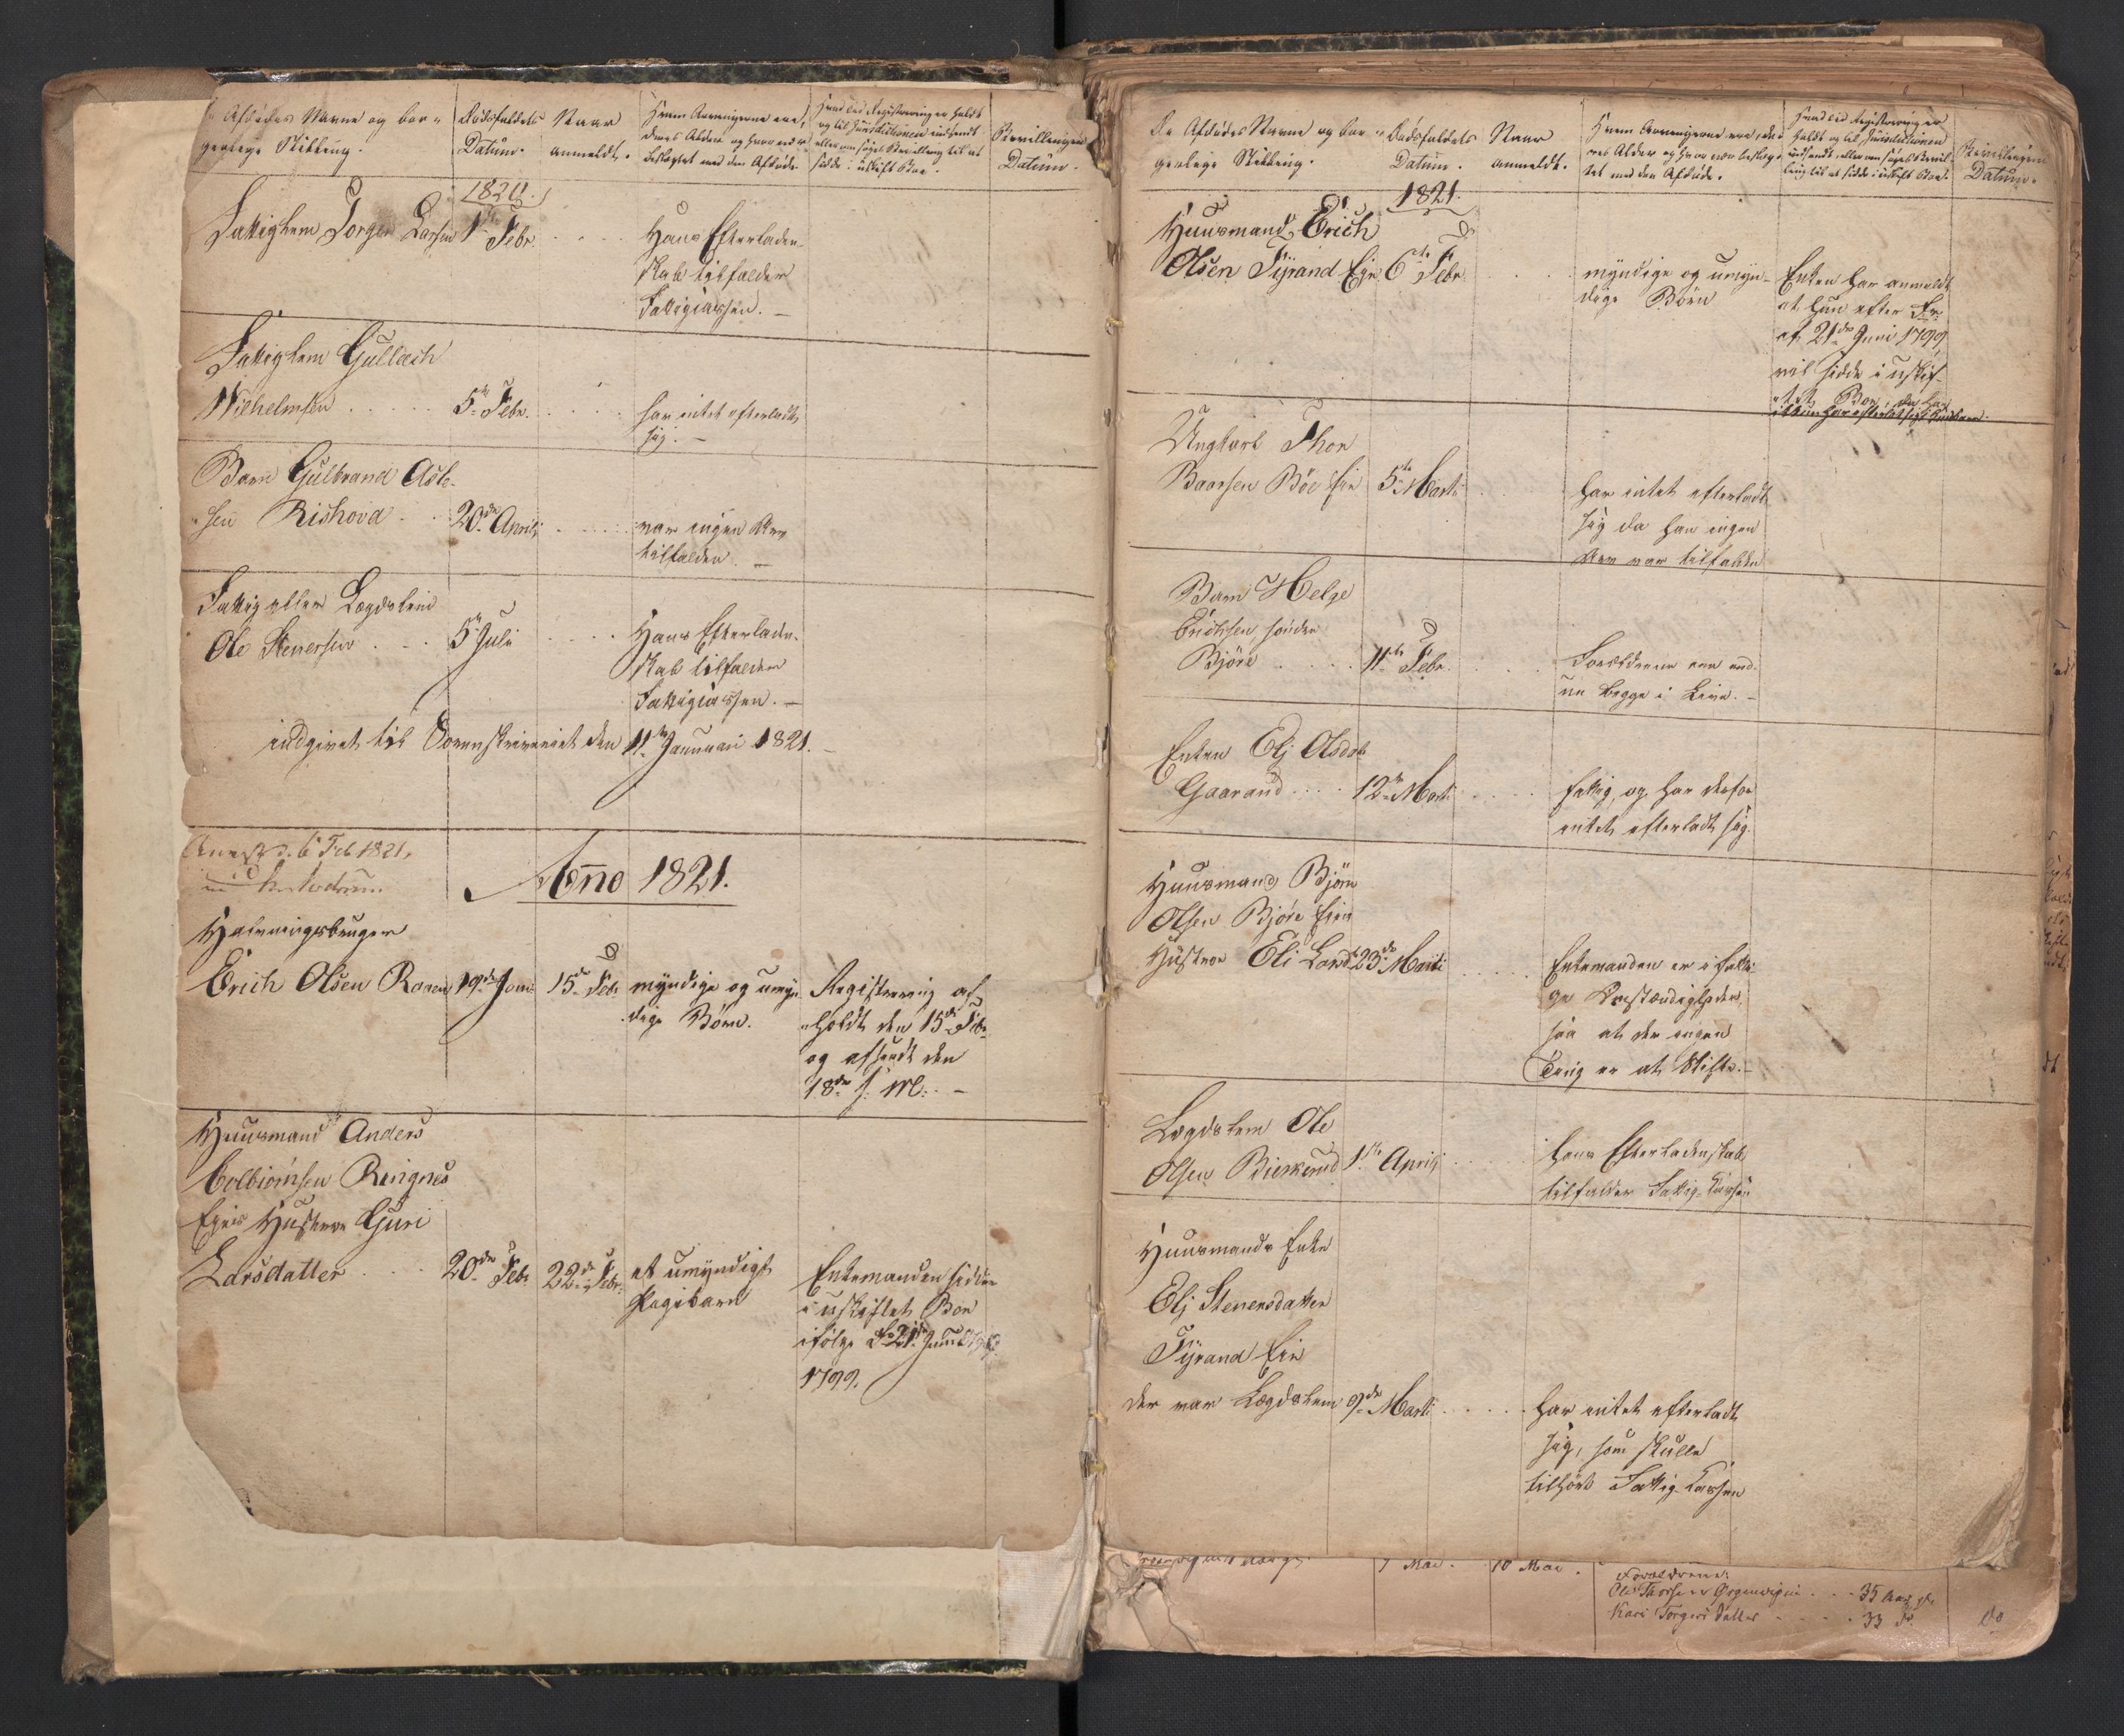 De Afdødes Navne og bor-
gerlige Stilling.
Dødsfaldets
Datum.
Naar
anmeldt.
Hvem Arvingerne ere,
deres Alder og hvor nær
beslægtet med den Afdøde.
Hvad tid Registreringer holdt
og til Jurisdictionen indsendt
eller om søges Bevilling til at
sidde i uskift Boe.
Bevillingens
Datum.
1820.
Fattiglem Torger Larsen 1ste Febr. . . . .
Hans Efterladen-
skab tilfalder
Fattigcassen. —
Fattiglem Gullech
Wilhelmsen . . . . 5te Febr. . . . .
har intet efterladt
sig. —
Barn Gulbrand Asle-
sen Rishovd . . 20de April . . . .
var ingen Arv
tilfalden. —
Fattig eller Lægdslem
Ole Stenersen . . . 5te Juli . . . .
Hans Efterladen-
skab tilfalder
Fattigcassen. —
indgivet til Sorenskriveriet den 11te Januari 1821. —
d. 6 Feb 1821,
Anno 1821.
Halvningsbruger
Erich Olsen Roaen 19de Janu. 15de Feb. myndige og umyn-
dige Børn.
Registrering af-
holdt den 15de Feb.
og afsendt den
18de s: M: —
Huusmand Anders
Colbiørnsen Ringnes
Eyers Hustroe Guri
Larsdatter . . . . 20de Febr. 22de Febr. et umyndigt
Pigebarn
Enkemanden sidder
i uskiftet Boe
ifølge Fr. 21de Juni
1799.
De Afdødes Navne og bor-
gerlige Stilling.
Dødsfaldets
Datum.
Naar
anmeldt.
Hvem Arvingerne ere, de-
res Alder og hvor nær beslæg-
tet med den Afdøde.
Hvad tid Registreringer
holdt og til Jurisdictionen
indsendt, eller om søges Bevil-
ling til at sidde i uskift Boe.
Bevillingens
Datum.
1821.
Huusmand Erich
Olsen Tyrand Eje 6te Febr. . . .
myndige og umyn-
dige Børn
Enken har anmeldt
at hun efter Fr:
af 21de Juni 1799
vil sidde i uskif-
tet Boe, da han
Ungkarl Thor
Baarsen Böe Eie 5te Marti . .
har intet efterladt
sig da han ingen
Arv var tilfalden
Barn Helge
Erichsen søndre
Björe . . . . . 11te Febr. . . . .
Forældrene ere end-
nu begge i Live. —
Enken Elj Olsdatter
Gaarand . . . . 12te Marti . . . .
fattig, og har derfor
intet efterladt sig.
Huusmand Bjørn
Olsen Björe Eies
Hustroe Eli Larsd. 23de Marti . . . .
Enkemanden er i fatti-
ge Omstændigheder,
saa at der ingen
Ting er at Skifte. —
Lægdslem Ole
Olsen Bierkerud 1ste April . . . .
hans Efterladenskab
tilfalder Fattig-Cassen
Huusmands Enke
Elj Stenersdatter
Tyrand Eie
der var Lægdslem 9de Marti . . . . .
har intet efterladt
sig, som skulle
tilhöre Fattig-Cassen
7 Mai. 10 Mai.
Forældrene:
Ole Thorsen . . . 35 Aar gl.
Kari Torgersdatter . . . . 33 do.
do